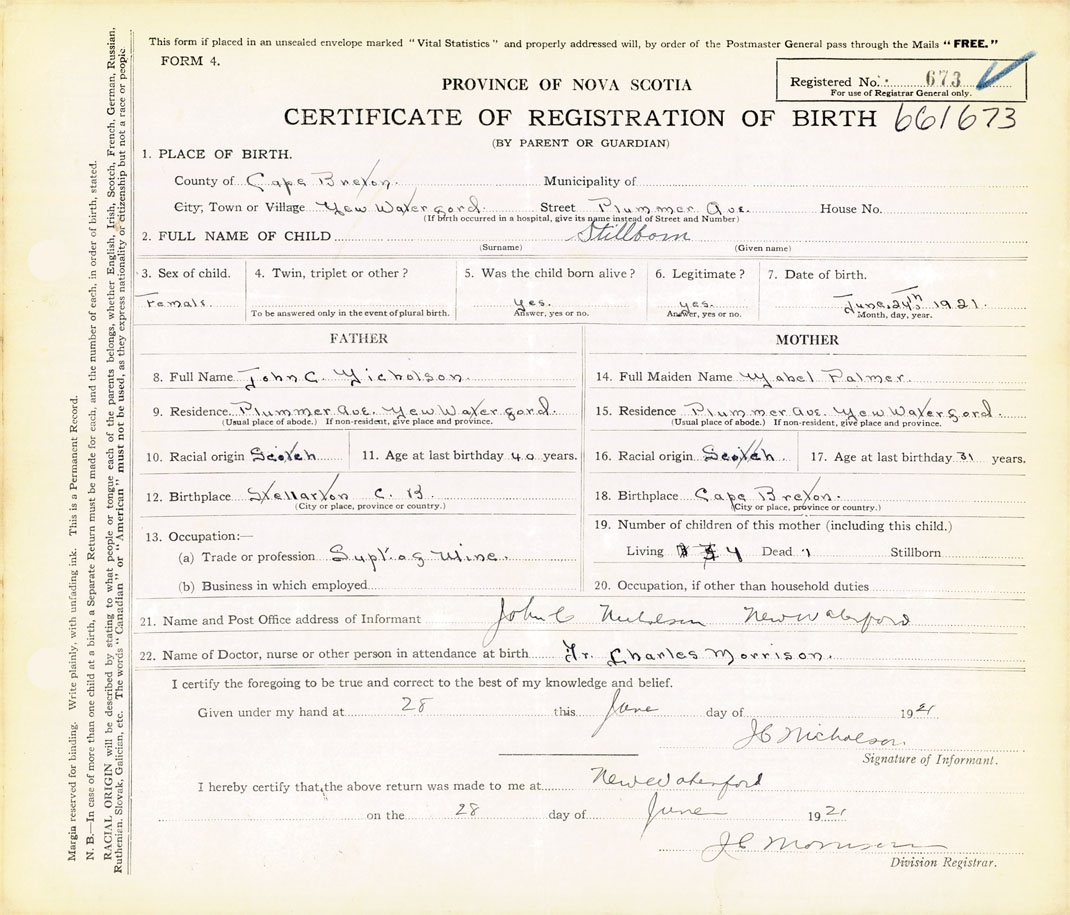 This form if placed in an unsealed envelope marked "Vital Statistics" and properly addressed will, by order of the Postmaster General pass through the Mails "FREE."
FORM 4.
PROVINCE OF NOVA SCOTIA
Registered No. 673
For use of Registrar General only.
CERTIFICATE OF REGISTRATION OF BIRTH 661673
(BY PARENT OR GUARDIAN)
1. PLACE OF BIRTH.
County of Cape Breton. Municipality of
City, Town or Village New Waterford. Street Plummer Ave. House No.
(If birth occurred in a hospital, give its name instead of Street and Number)
2. FULL NAME OF CHILD Stillborn
(Surname) (Given name)
3. Sex of child. 4. Twin, triplet or other? 5. Was the child born alive? 6. Legitimate? 7. Date of birth.
Female. yes. yes. June. 24th, 1921.
To be answered only in the event of plural birth. Answer, yes or no. Answer, yes or no. Month, day, year.
FATHER
8. Full Name John C. Nicholson.
9. Residence Plummer Ave. New Waterford.
(Usual place of abode.) If non-resident, give place and province.
10. Racial origin Scotch 11. Age at last birthday 40 years.
12. Birthplace Stellarton C. B.
(City or place, province or country.)
13. Occupation:—
(a) Trade or profession Supt. of Mine.
(b) Business in which employed
MOTHER
14. Full Maiden Name Mabel Palmer.
15. Residence Plummer Ave. New Waterford.
(Usual place of abode.) If non-resident, give place and province.
16. Racial origin Scotch 17. Age at last birthday 31 years.
18. Birthplace Cape Breton.
(City or place, province or country.)
19. Number of children of this mother (including this child.)
Living 4 Dead 1 Stillborn
20. Occupation, if other than household duties
21. Name and Post Office address of Informant John C Nicholson New Waterford
22. Name of Doctor, nurse or other person in attendance at birth Dr. Charles Morrison.
I certify the foregoing to be true and correct to the best of my knowledge and belief.
Given under my hand at 28 this June day of 1921
J C Nicholson
Signature of Informant.
I hereby certify that the above return was made to me at New Waterford
on the 28 day of June 1921
J C Morrison
Division Registrar.
Margin reserved for binding. Write plainly, with unfading ink. This is a Permanent Record.
N. B.—In case of more than one child at a birth, a Separate Return must be made for each, and the number of each, in order of birth, stated.
RACIAL ORIGIN will be described by stating to what people or tongue each of the parents belongs, whether English, Irish, Scotch, French, German, Russian,
Ruthenian, Slovak, Galician, etc. The words "Canadian" or "American" must not be used, as they express nationality or citizenship but not a race or people